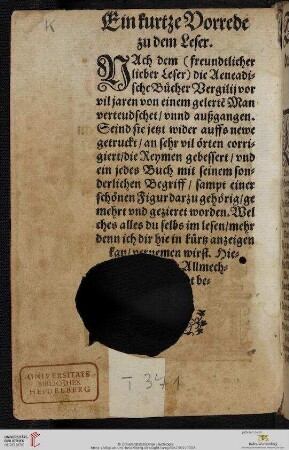 K
Ein kurtze Vorrede
zu dem Leser.
NAch dem (freundtlicher
lieber Leser) die Aeneadi-
sche Bücher Vergilij vor
vil jaren von einem gelertē Man
verteudschet / vnnd außgangen.
Seind sie jetzt wider auffs newe
getruckt / an sehr vil örten corri-
giert / die Reymen gebessert / vnd
ein jedes Buch mit seinem son-
derlichen Begriff / sampt einer
schönen Figur darzu gehörig / ge
mehrt vnd gezieret worden. Wel
ches alles du selbs im lesen / mehr
denn ich dir hie in kürtz anzeigen
kan / vernemen wirst. Hie-
Allmech-
be-
UNIVERSITÄTS
BIBLIOTHEK
HEIDELBERG
T 371
UNIVERSITÄTS-
BIBLIOTHEK
HEIDELBERG